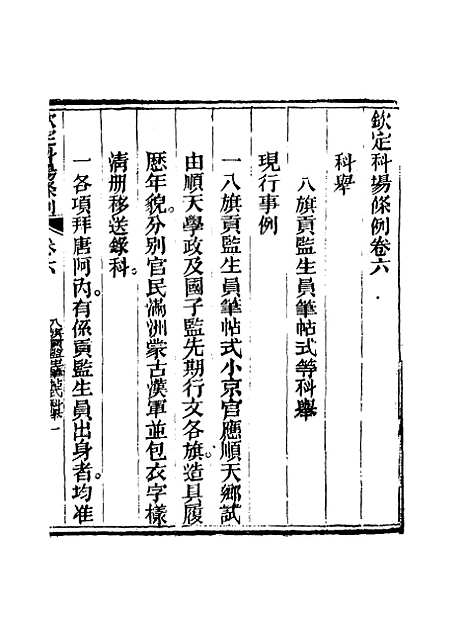 欽定科場條例卷六
科舉
八旗貢監生員筆帖式等科舉
現行事例
一八旗貢監生員筆帖式小京官應順天鄉試
由順天學政及國子監先期行文各旗造具履
歷年貌分別官民滿洲蒙古漢軍並包衣字樣
清册移送錄科。
一各項拜唐阿內有係貢監生員出身者均准
欽定科場條例 卷六 八旗貢監生員筆帖式等科舉 一